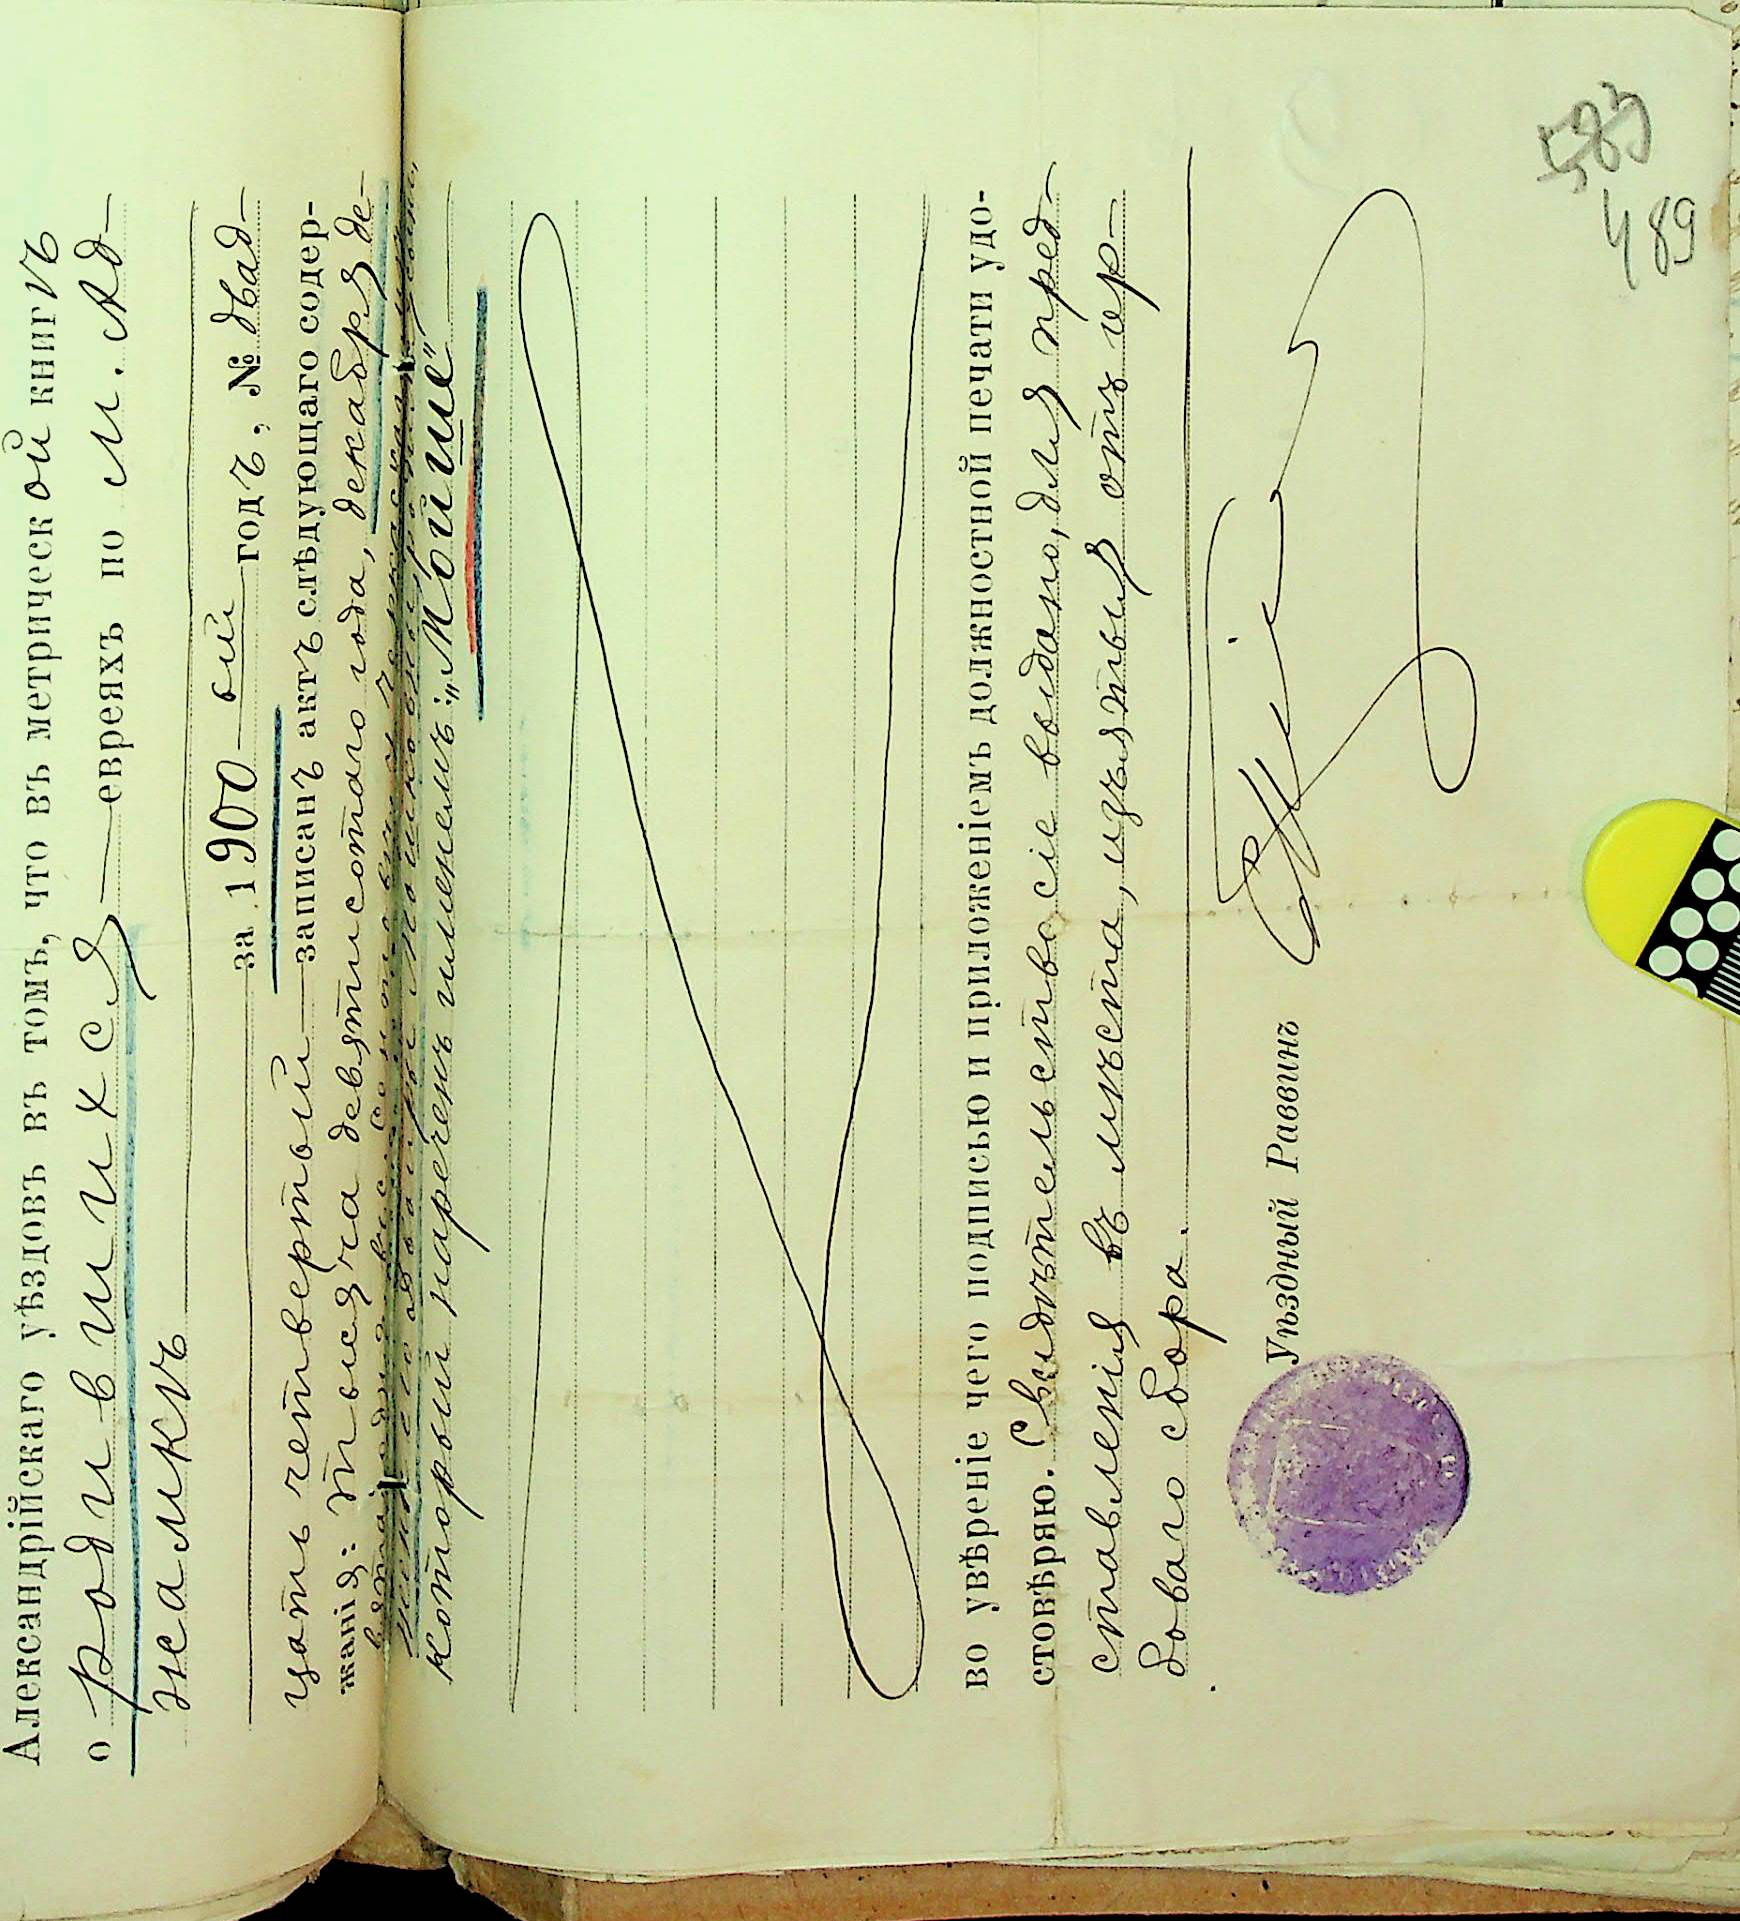 Александрійскаго уѣздовъ въ томъ, что въ метрической книгѣ
о родившихся — евреяхъ по м. Ад-
жамкѣ
за 1900 ый годъ, № двад-
цать четвертый — записанъ актъ слѣдующаго содер-
жанія: Тысяча девятисотаго года, декабря де-
вятаго дня
который нареченъ именемъ: „Мойше"
во увѣреніе чего подписью и приложеніемъ должностной печати удо-
стовѣряю. Свидѣтельство сіе выдано, для пред-
ставленія въ мѣста, изъятыя отъ гер-
боваго сбора.
Уѣздный Раввинъ
583
489